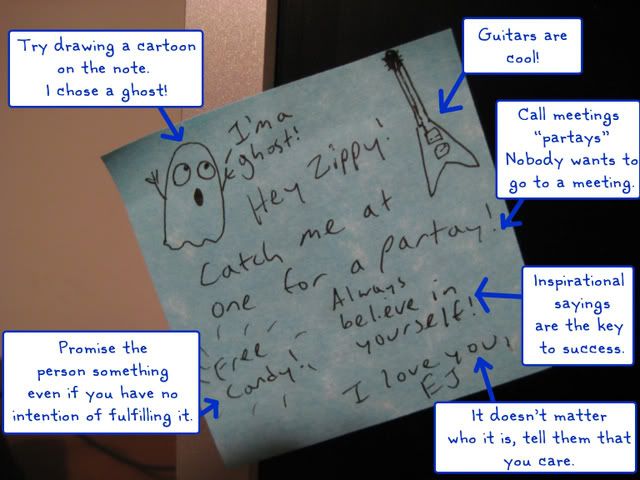 Try drawing a cartoon
on the note.
I chose a ghost!
Guitars are
cool!
Call meetings
"partays"
Nobody wants to
go to a meeting.
I'm a
ghost!
Hey Zippy!
Catch me at
one for a partay!
Always
believe in
yourself!
Free
Candy!
I love you,
EJ
Inspirational
sayings
are the key
to success.
Promise the
person something
even if you have no
intention of fulfilling it.
It doesn't matter
who it is, tell them that
you care.